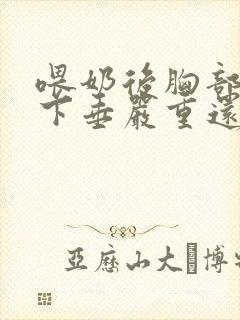 喂奶後胸部
下垂嚴重還
亞歷山大▯博士